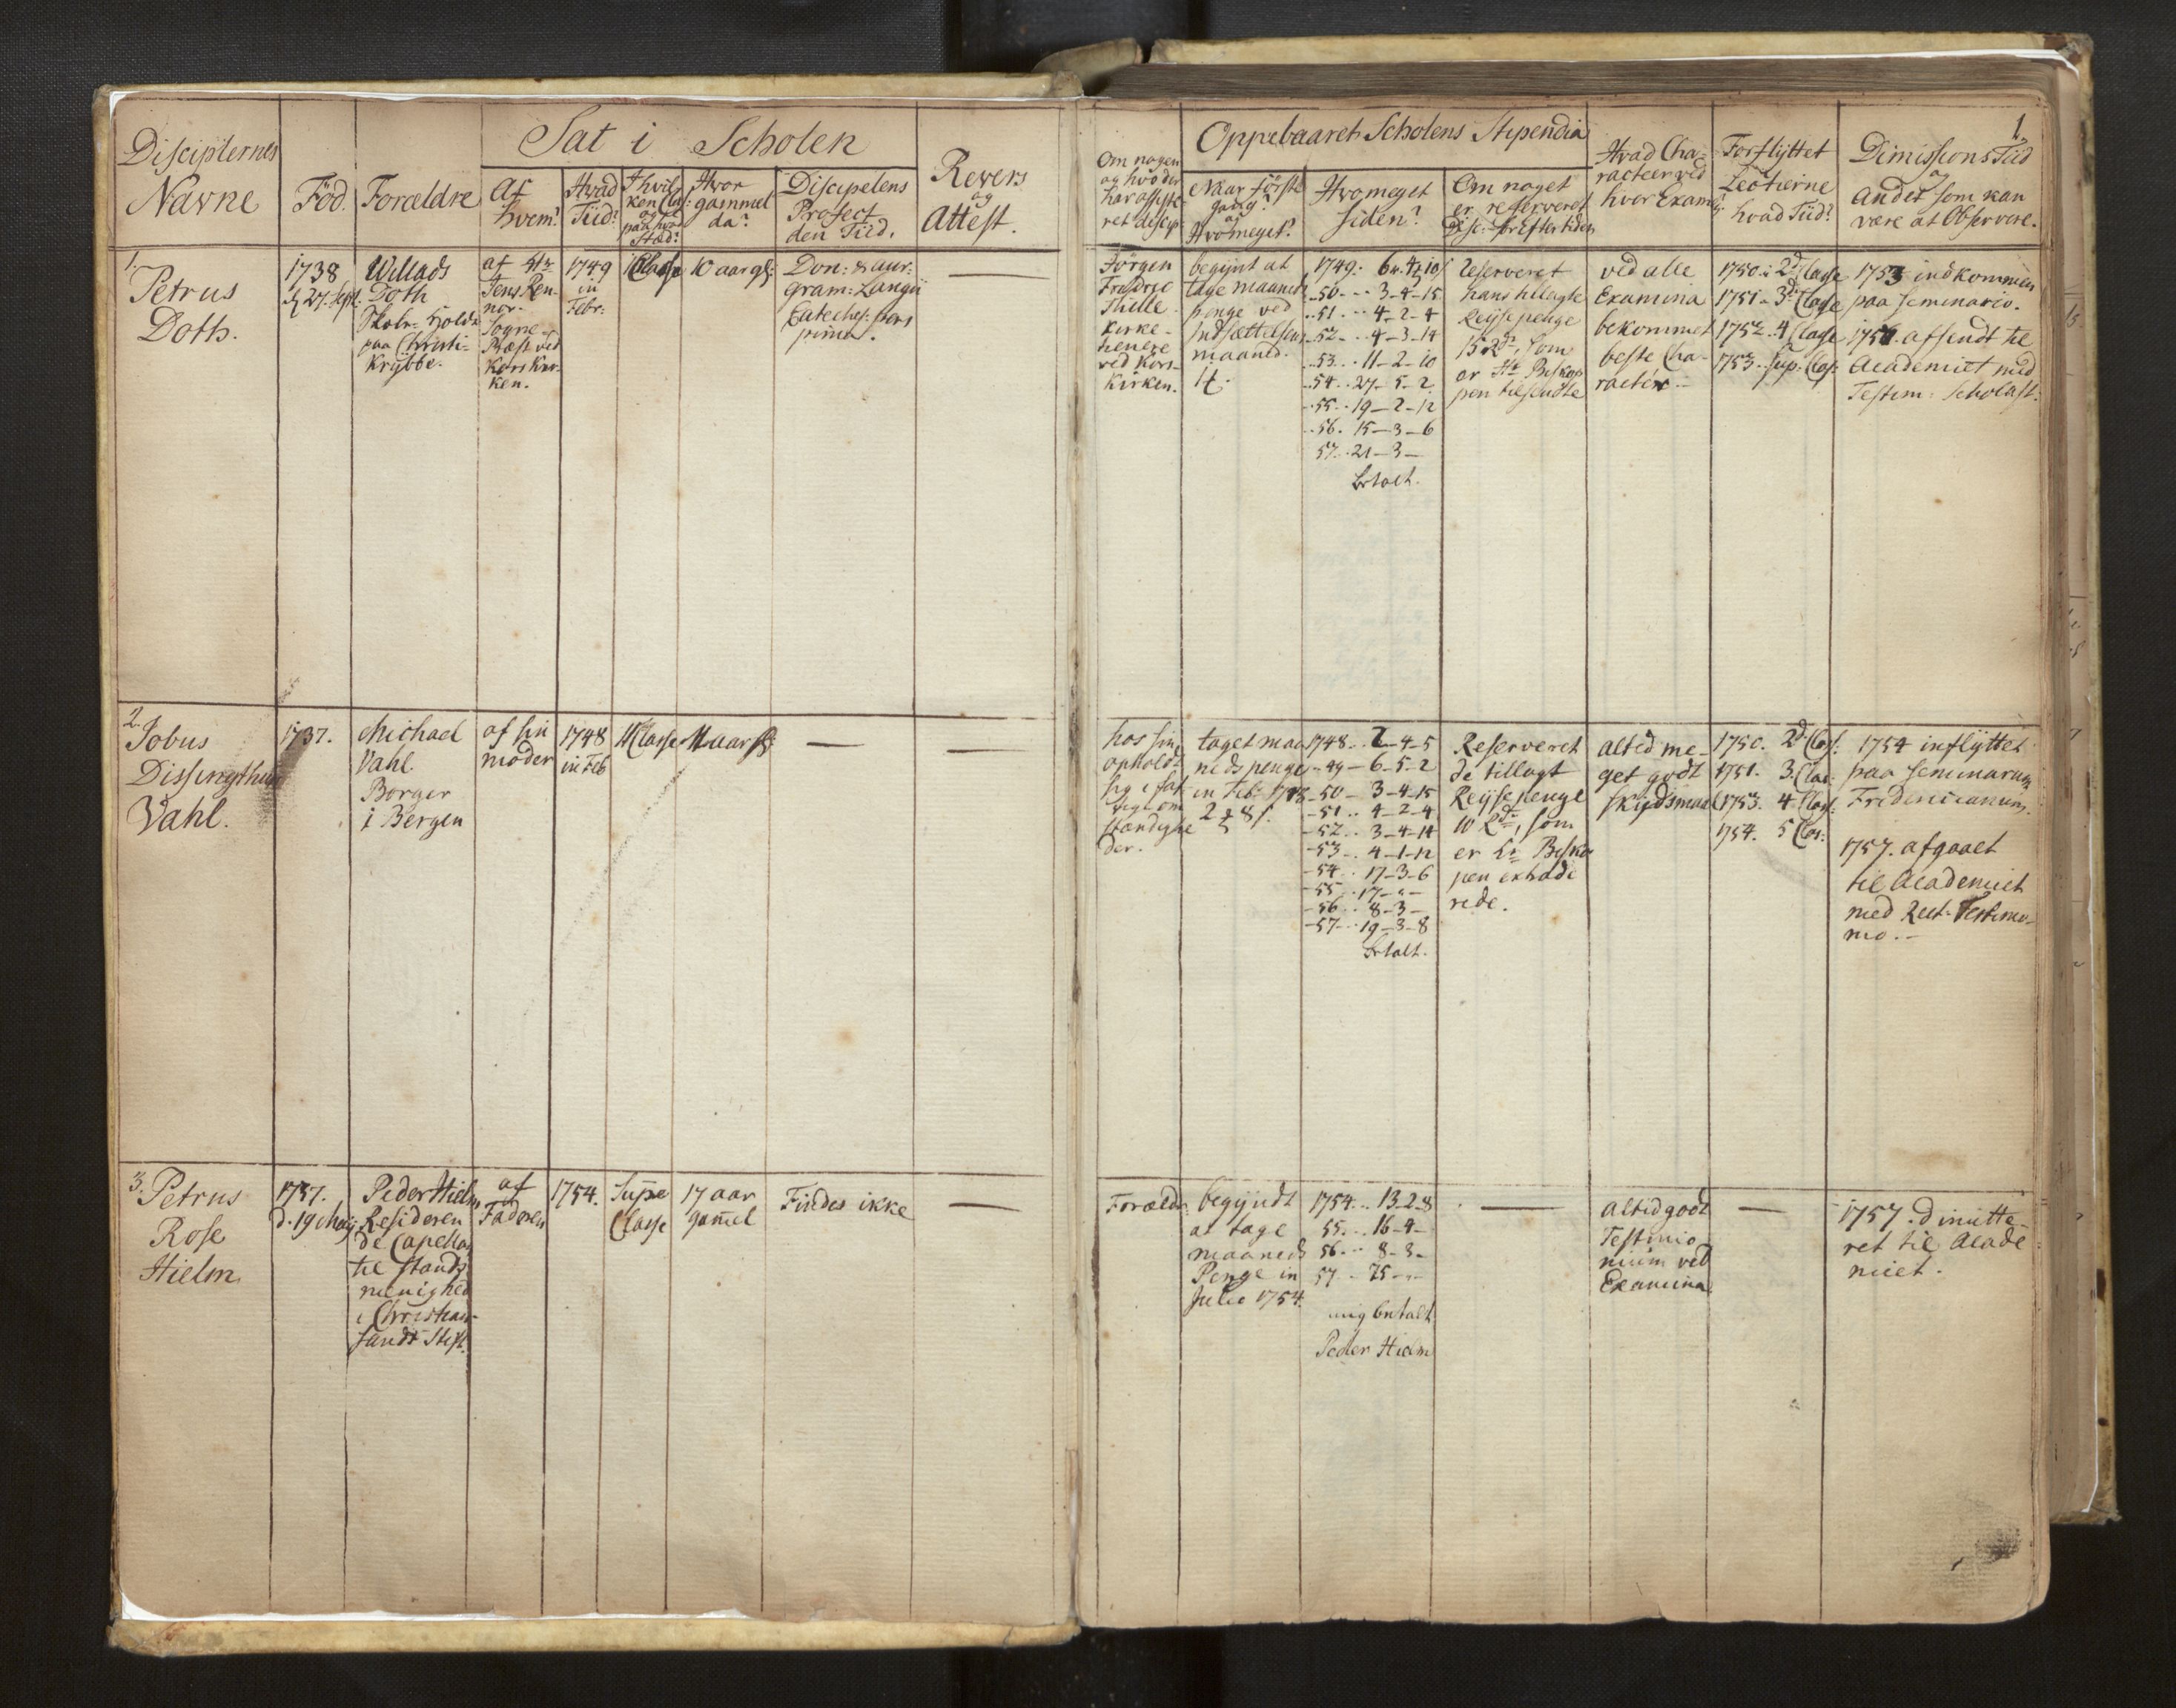 Disciplernes
Navne
Föd.
Forældre
Sat i Scholen
Af
hvem?
Hvad
Tiid?
I hvil-
ken Cla
og
paa hvad
Stæd?
Hvor
gammel
da?
Discipelens
Profect
den Tiid.
Revers
og
Attest.
1.
Petrus
Doth.
1738
d 27. Sept.
Willads
Doth
Skole-Hold:
paa Christi-
Krÿbbe.
af Hr
Jens Ren-
nor.
Sogne-
Præst ved
Kors Kir-
ken.
1749
in
Febr:
1 Classe
10 aar gl:
Don: & aur:
gram: Langii
Cateches: pars
prima.
2.
Jobus
Dissingthun
Vahl.
1737.
Michael
Vahl
Borger
i Bergen
af sin
moder
1748
in Feb
1 Classe
11 aar
3.
Petrus
Rose
Hielm
1737.
d. 19 Maij
Peder Hielm
Resideren
de Capellan
til Stands
menighed
i Christian-
sands Stift.
af
Faderen
1754.
Supr
Classe
17 aar
gamel
Findes ikke
1.
Om nogen
og hvo der
har assiste-
ret discip:
Oppebaaret Scholens Stipendia
Naar förste
gang?
og
Hvomeget?
Hvomeget
siden?
Om noget
er reserveret
Disc: for Eftertiden
Hvad Cha-
racteer ved
hver Exam:
Forflÿttet
i
Lectierne
hvad Tiid?
Dimissions Tiid
og
andet som kan
være at Observere.
Jörgen
Fredric
Thille
Kirke-
tienere
ved Kors-
Kirken.
begÿnt at
tage maaneds
penge ved
Indsættelsens
maaned.
1749. 6 4 10
-50 - 3-4-15
-51 - 4-2-4
-52 - 4-3-14
-53 - 11-2-10
-54 - 27-5-2
-55 - 19-2-12
-56. 15-3-6
57. 21-3-
betalt.
Reserveret
hans tillagte
Reÿsepenge
15 Rdr, som
er Hr Biskop
pen tilsendte
ved alle
Examina
bekommet
beste Cha-
racter
1750. i 2d Classe
1751 - 3d Classe
1752. 4 Classe
1753. Sup: Clas:
1753 indkommen
paa Seminario.
1757. afsendt til
Academiet med
Testim: Scholast:
hos sin
ophold:
der.
taget maa
neds penge
in Feb: 1748
2 8 s.
1748. 2-4-5
-49 - 6-5-2
-50 - 3-4-15
-51 - 4-2-4
-52 - 3-4-14
-53 - 4-1-12
-54 - 17-3-6
-55 - 17-"-
-56 - 8-3-
-57 - 19-3-8
betalt.
Reserveret
de tillagt
Reÿsepenge
10 Rdr, som
er Hr Bisko
pen extradi
rede.
altid me-
get godt
skudsmaal
1750. 2d Clas:
1751. 3. Clas:
1753. 4 Class:
1754. 5 Clas:
1754 inflÿttet
paa Seminarium
Fridericianum.
1757. afgaaet
til Academiet
med Rect. Testimo-
nio.
Foræld:
begÿndt
at tage
maaneds
Penge in
Julio 1754.
1754. 13-2-8
55. 16-4-
56. 8-3-
57. 75
mig betalt
Peder Hielm
altid godt
Testimo
nium ved
Examina
1757. dimitte-
ret til Acade
miet.